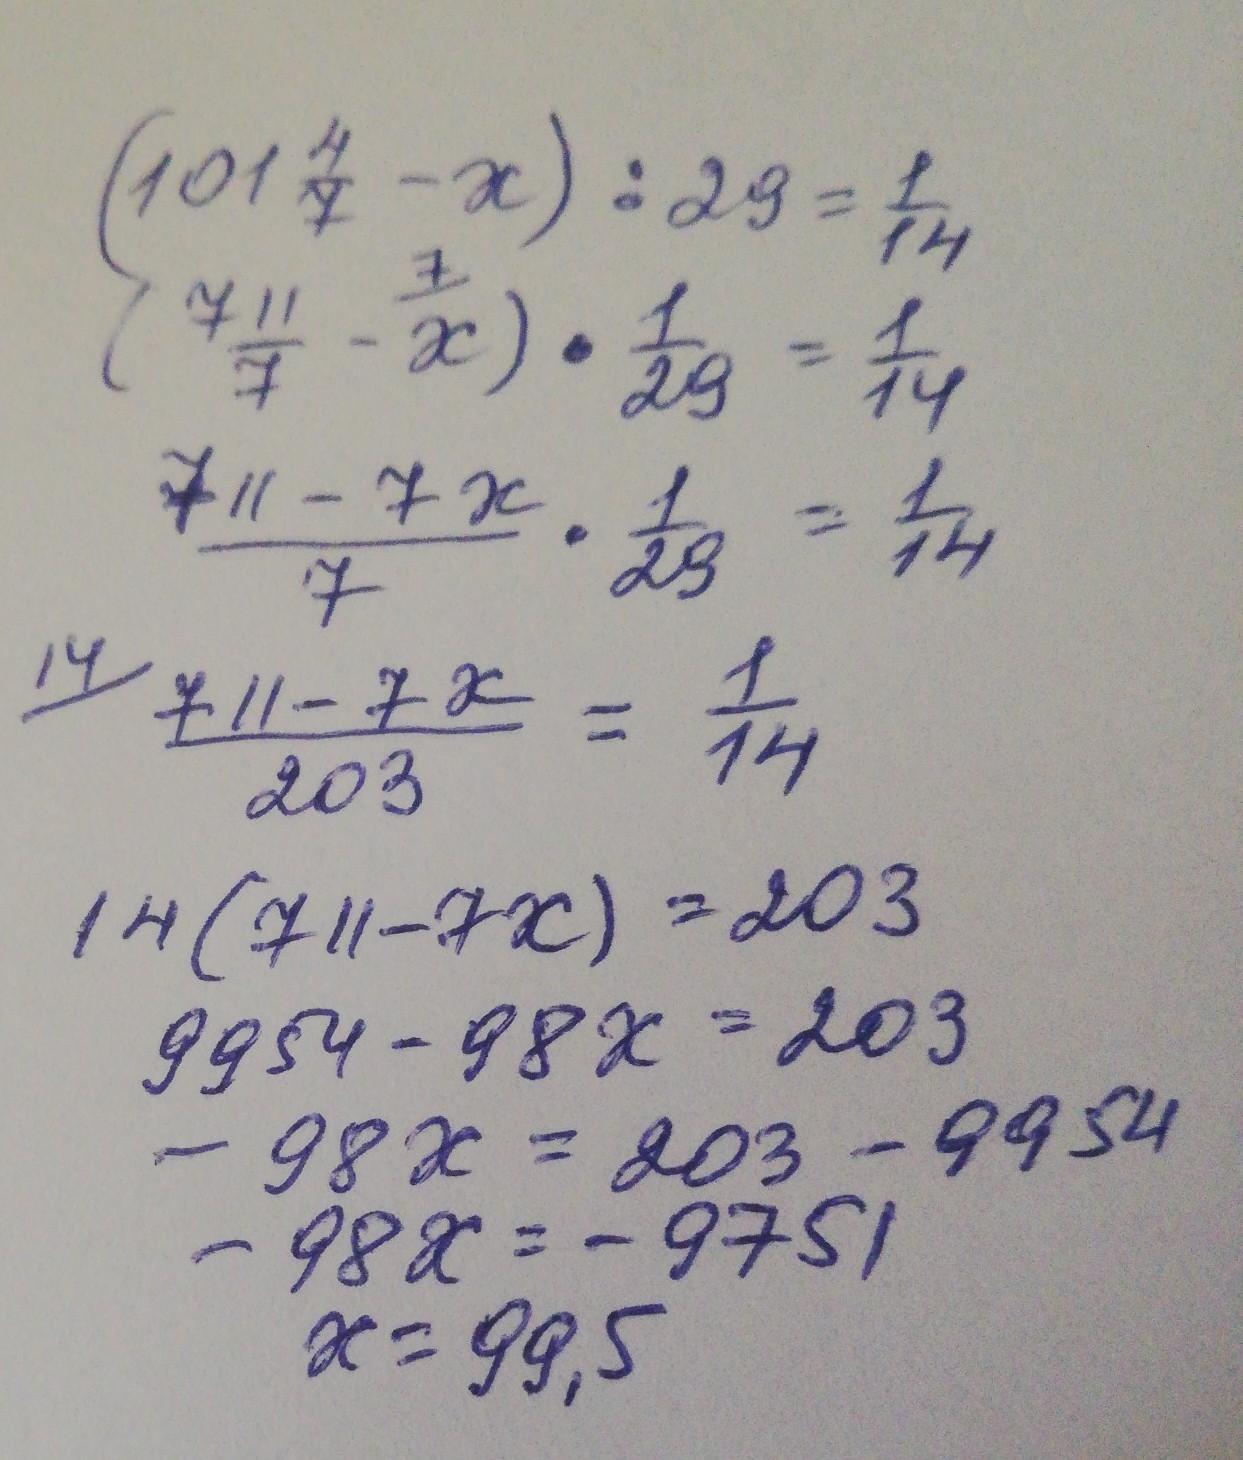 (101 4/7 - x) : 29 = 1/14
(711/7 - x/7) · 1/29 = 1/14
711 - 7x/7 · 1/29 = 1/14
14/ 711 - 7x/203 = 1/14
14(711 - 7x) = 203
9954 - 98x = 203
- 98x = 203 - 9954
- 98x = - 9751
x = 99,5